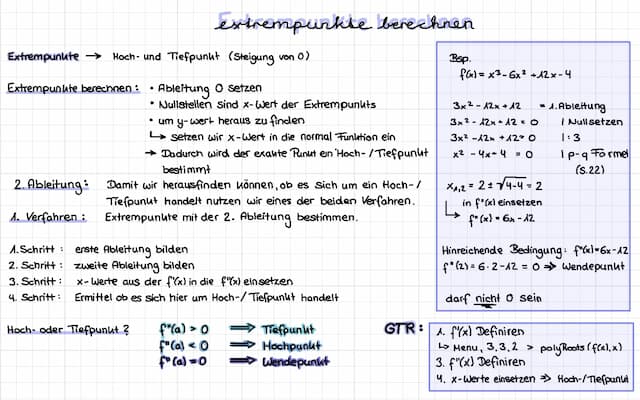 extrempunkte berechnen
Extrempunkte → Hoch- und Tiefpunkt (Steigung von 0)
Extrempunkte berechnen: • Ableitung 0 setzen
• Nullstellen sind x-Wert der Extrempunkts
• um y-wert heraus zu finden
↳ setzen wir x-Wert in die normal Funktion ein
→ Dadurch wird der exakte Punkt ein Hoch-/Tiefpunkt
bestimmt
2. Ableitung: Damit wir herausfinden können, ob es sich um ein Hoch-/
Tiefpunkt handelt nutzen wir eines der beiden Verfahren.
1. Verfahren: Extrempunkte mit der 2. Ableitung bestimmen.
1. Schritt: erste Ableitung bilden
2. Schritt: zweite Ableitung bilden
3. Schritt: x-Werte aus der f'(x) in die f''(x) einsetzen
4. Schritt: Ermittel ob es sich hier um Hoch-/Tiefpunkt handelt
Hoch- oder Tiefpunkt? f''(a) > 0 ⟹ Tiefpunkt
f''(a) < 0 ⟹ Hochpunkt
f''(a) = 0 ⟹ Wendepunkt
Bsp.
f(x) = x³-6x² +12x-4
3x² -12x+12 = 1. Ableitung
3x² -12x +12 = 0 | Nullsetzen
3x² -12x +12 = 0 | : 3
x² -4x+4 = 0 | p-q Formel
(S.22)
x₁,₂ = 2 ± √4-4 = 2
in f''(x) einsetzen
↳ f''(x) = 6x-12
Hinreichende Bedingung: f''(x)=6x-12
f''(2) = 6·2-12 = 0 ⇒ Wendepunkt
darf nicht 0 sein
GTR: 1. f'(x) Definiren
↳ Menu, 3, 3, 2 > polyRoots(f(x),x)
3. f''(x) Definiren
4. x-Werte einsetzen ⇒ Hoch-/Tiefpunkt